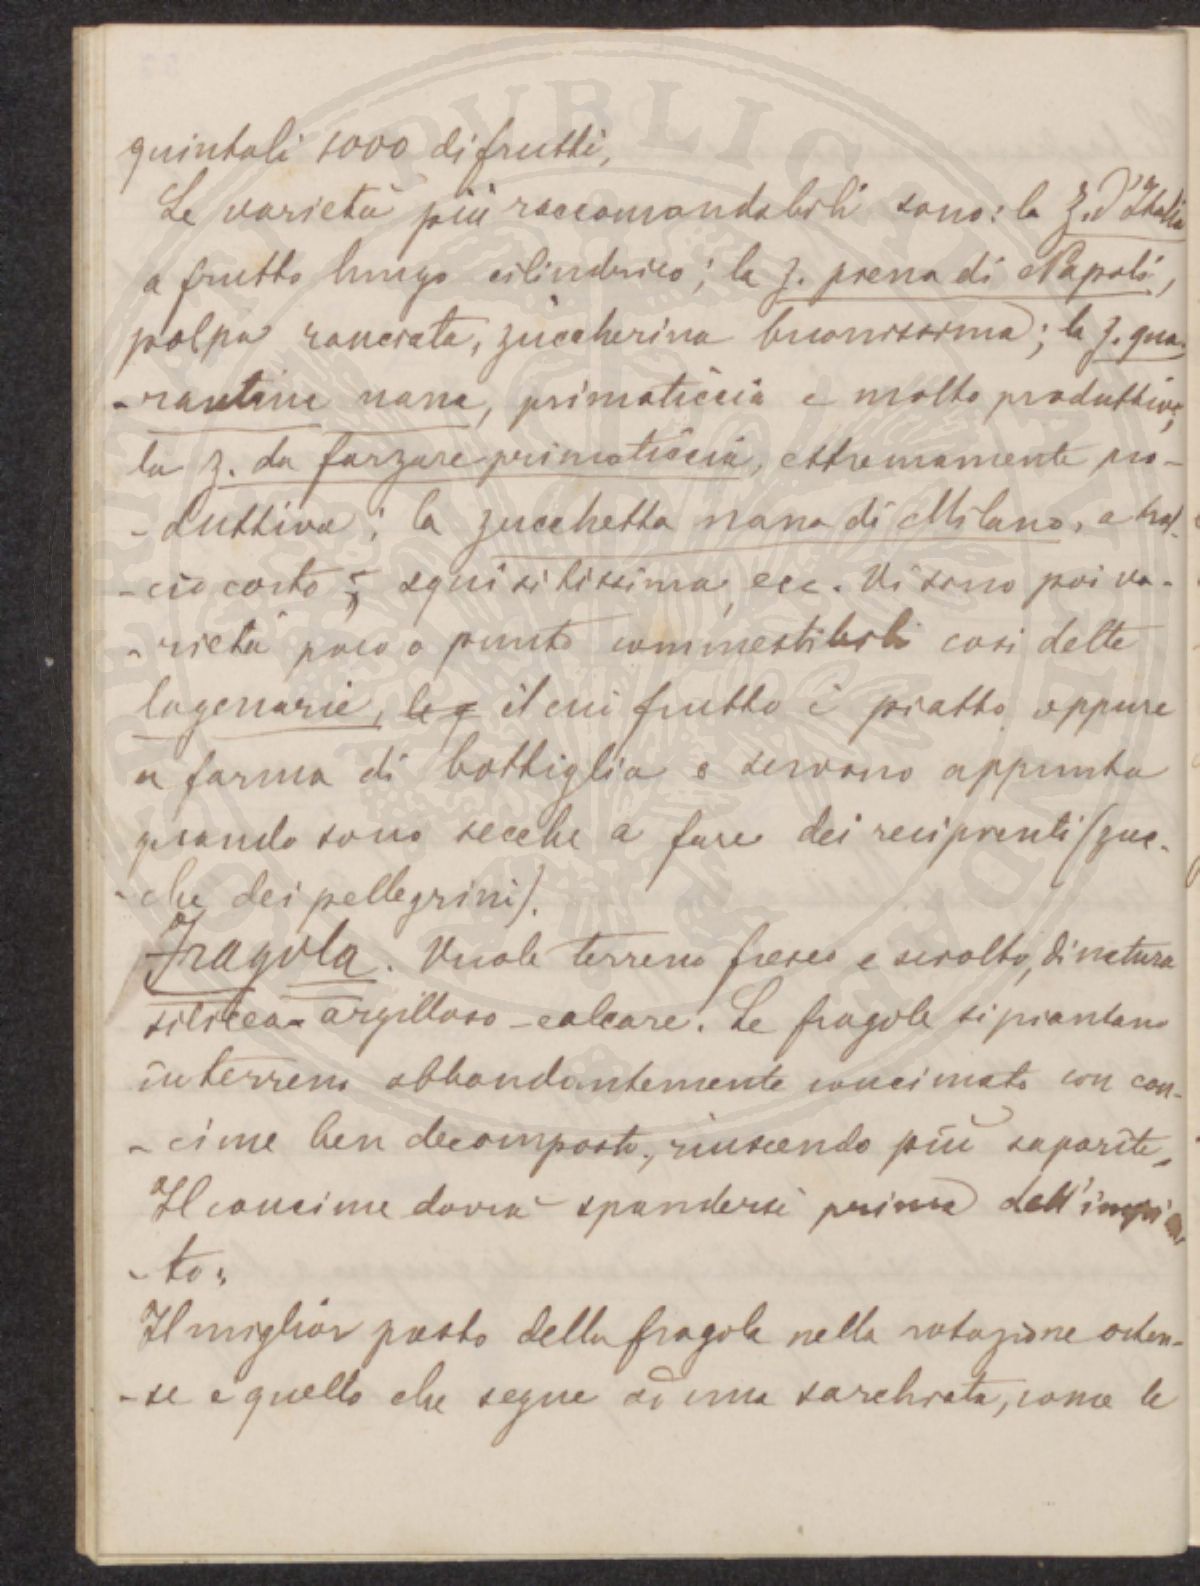 quintali 1000 di frutti.
Le varietà più raccomandabili sono: la z. d'Italia
a frutto lungo cilindrico; la z. piena di Napoli,
polpa ranciata, zuccherina buonissima; la z. qua-
-rantina nana, primaticcia e molto produttiva;
la z. da forzare primaticcia, estremamente pro-
-duttiva; la zucchetta nana di Milano, a tral-
-cio corto; squisitissima, ecc. Vi sono poi va-
-rietà poco o punto commestibili così dette
lagenarie, le q il cui frutto è piatto oppure
a forma di bottiglia e servono appunto
quando sono secche a fare dei recipienti (zuc-
-che dei pellegrini).
Fragola. Vuole terreno fresco e sciolto, di natura
silicea-argilloso-calcare. Le fragole si piantano
in terreno abbondantemente concimato con con-
-cime ben decomposto, riuscendo più saporite.
Il concime dovrà spandersi prima dell'impian
-to.
Il miglior posto della fragola nella rotazione orten-
-se è quello che segue ad una sarchiata, come le
PVBLICA